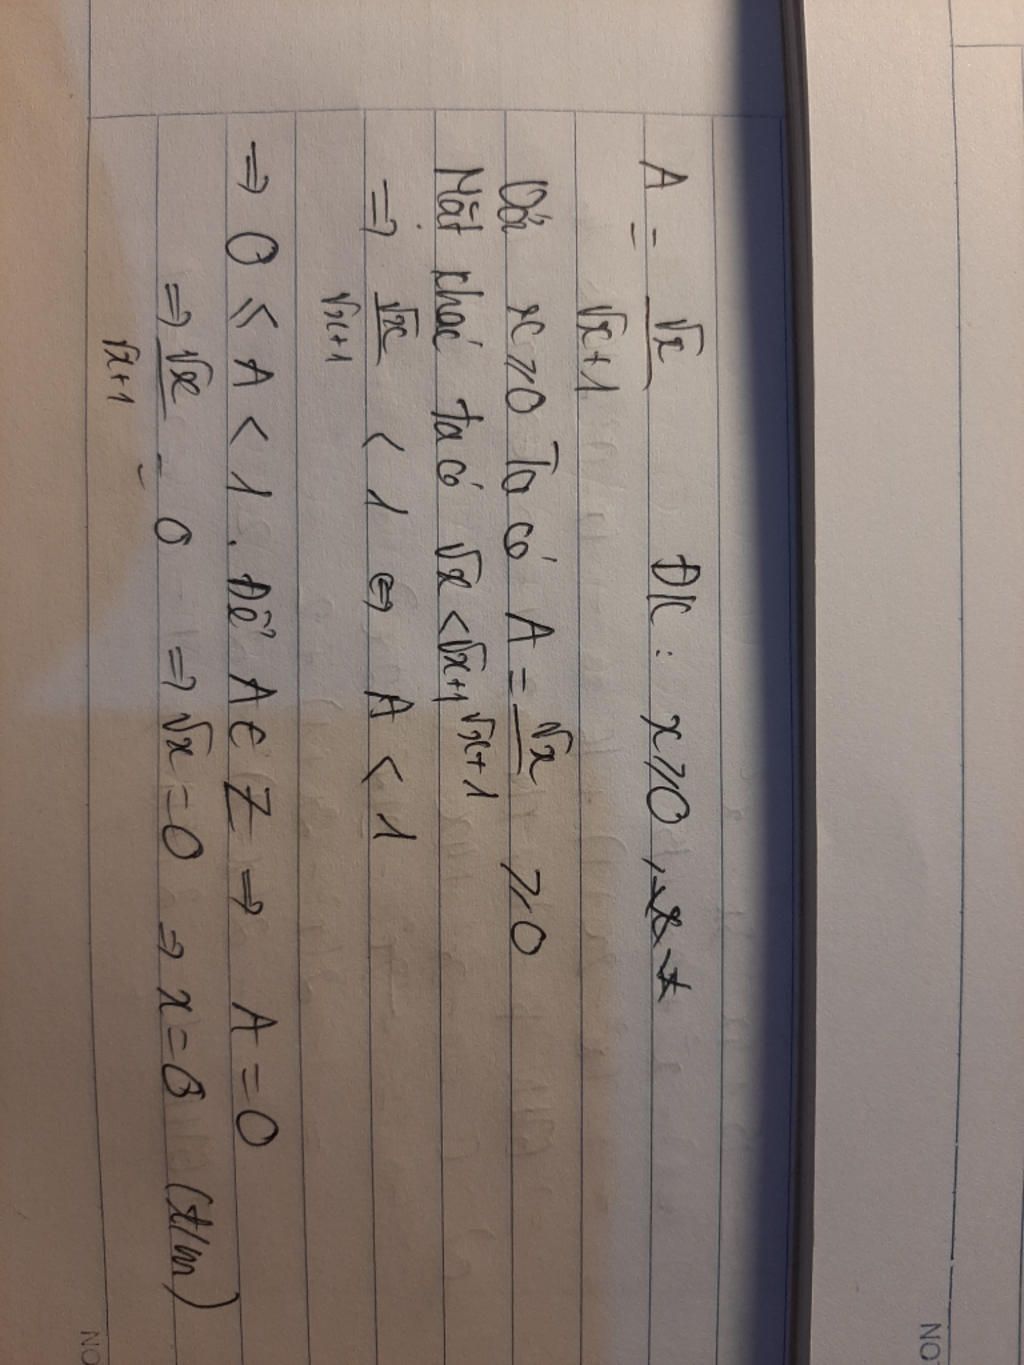 A = √x / √x+1 ĐK: x ⩾ 0,
Với x ⩾ 0 Ta có A = √x / √x+1 ⩾ 0
Mặt khác ta có √x < √x+1
⇒ √x / √x+1 < 1 ⇔ A < 1
⇒ 0 ⩽ A < 1. Để A ∈ Z ⇒ A = 0
⇒ √x / √x+1 = 0 ⇒ √x = 0 ⇒ x = 0 (t/m)
NO
NO